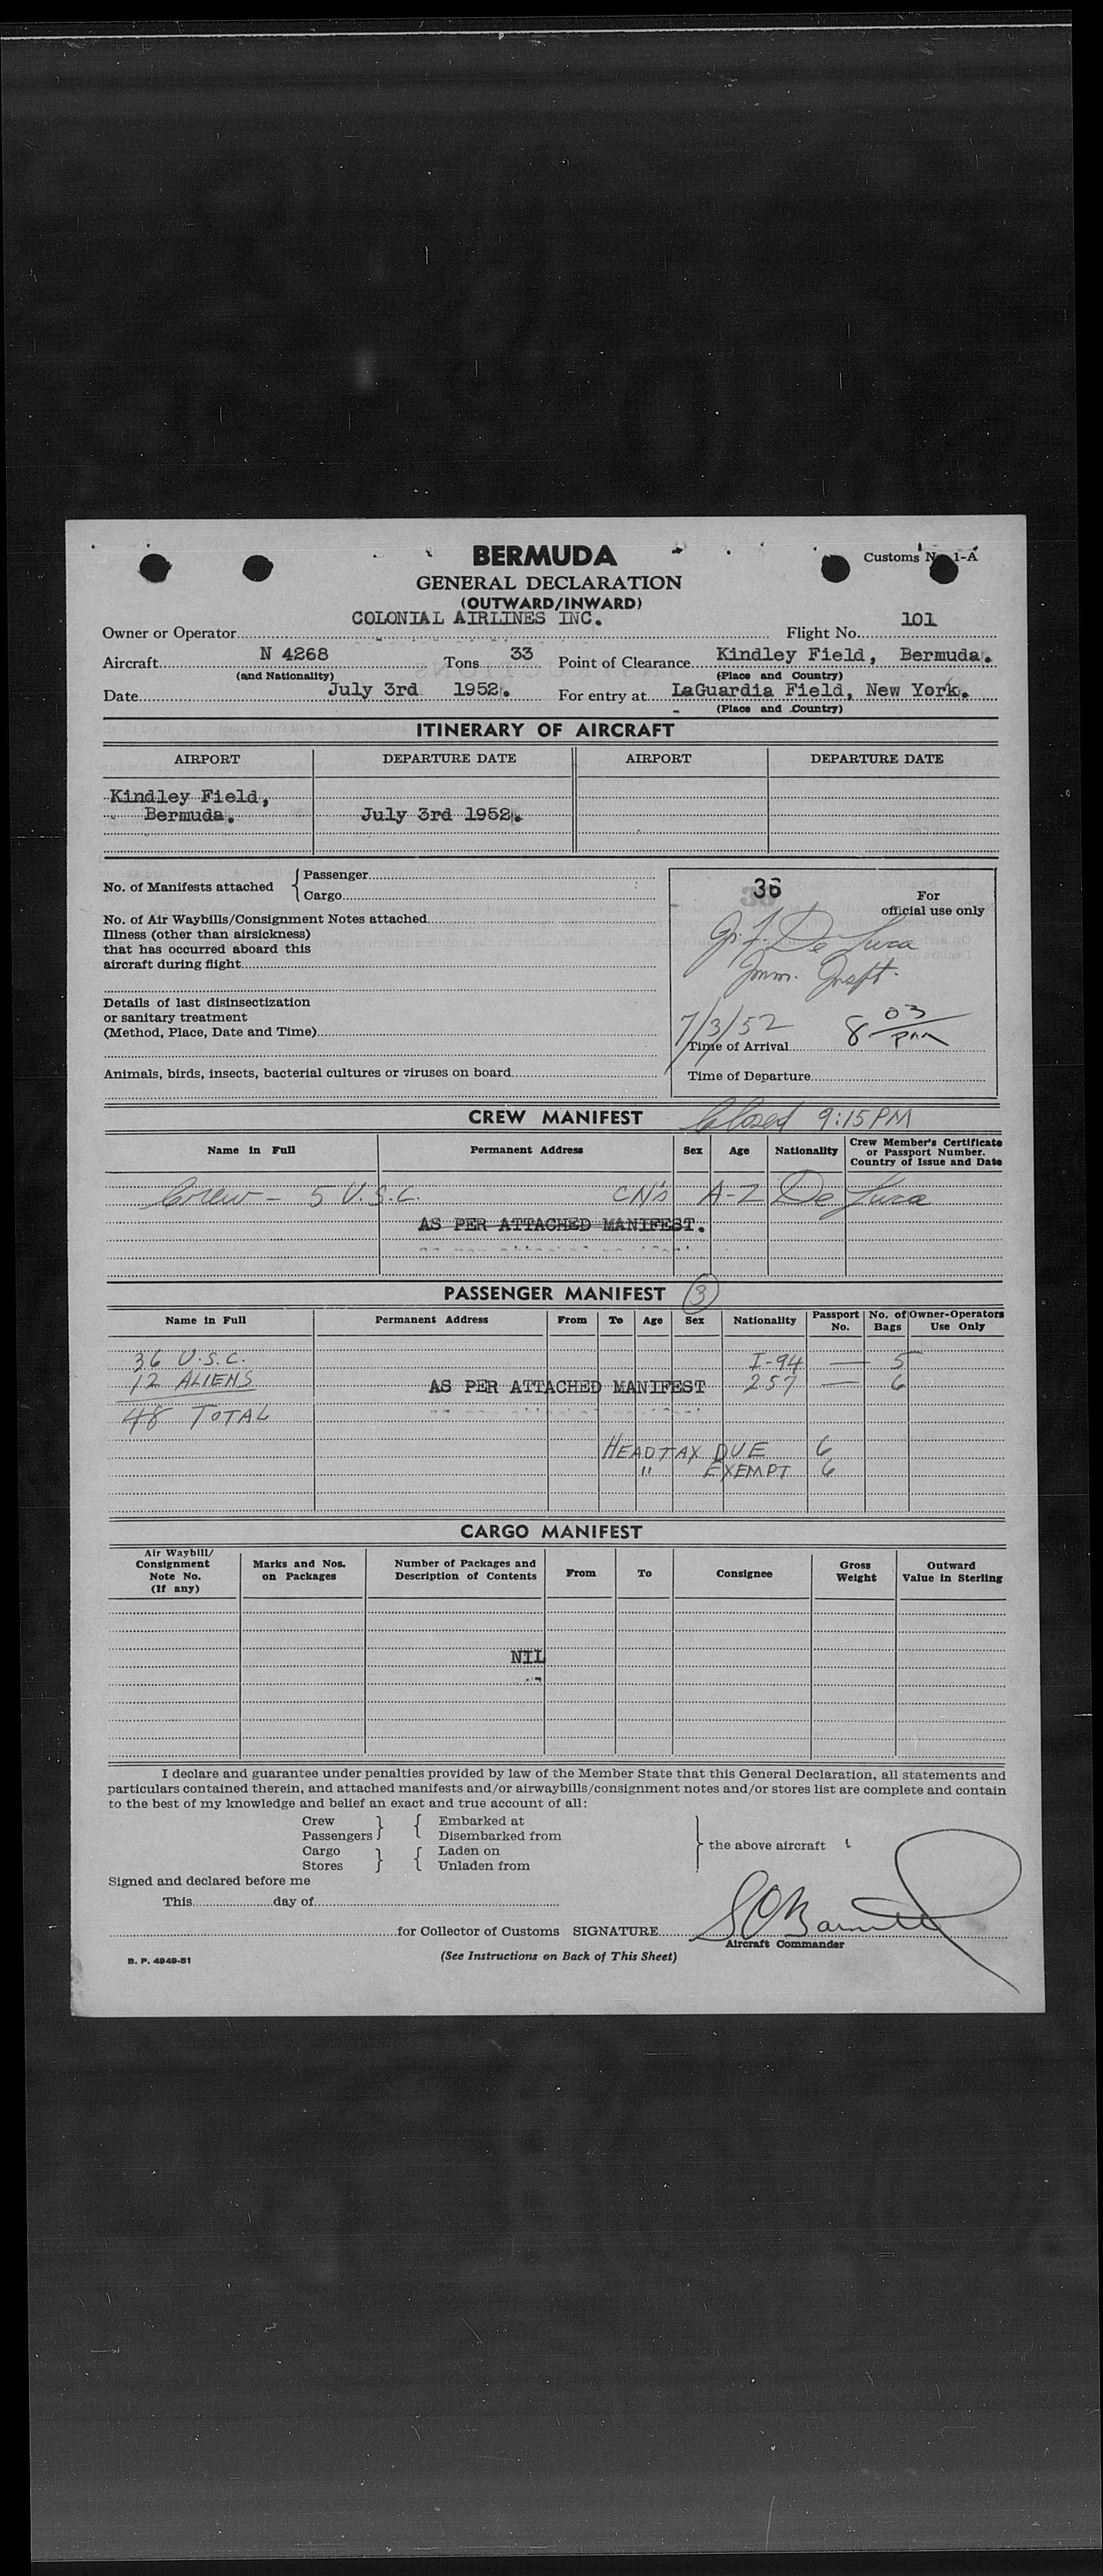 BERMUDA
Customs No. 1-A
GENERAL DECLARATION
(OUTWARD/INWARD)
Owner or Operator COLONIAL AIRLINES INC. Flight No. 101
Aircraft N 4268 Tons 33 Point of Clearance Kindley Field, Bermuda.
(and Nationality) (Place and Country)
Date July 3rd 1952. For entry at LaGuardia Field, New York.
(Place and Country)
ITINERARY OF AIRCRAFT
AIRPORT DEPARTURE DATE AIRPORT DEPARTURE DATE
Kindley Field,
Bermuda. July 3rd 1952.
No. of Manifests attached { Passenger
Cargo
36 For
official use only
No. of Air Waybills/Consignment Notes attached
Illness (other than airsickness)
that has occurred aboard this
aircraft during flight
De Luca
Imm. Inspt.
Details of last disinsectization
or sanitary treatment
(Method, Place, Date and Time)
7/3/52 8 03 pm
Time of Arrival
Animals, birds, insects, bacterial cultures or viruses on board
Time of Departure
CREW MANIFEST Closed 9:15 PM
Name in Full Permanent Address Sex Age Nationality Crew Member's Certificate
or Passport Number.
Country of Issue and Date
Crew - 5 U.S.C. CN's A-2 De Luca
AS PER ATTACHED MANIFEST.
PASSENGER MANIFEST 3
Name in Full Permanent Address From To Age Sex Nationality Passport No. No. of Bags Owner-Operators Use Only
36 U.S.C. I-94 — 5
12 ALIENS AS PER ATTACHED MANIFEST 257 — 6
48 TOTAL
HEADTAX DUE 6
" EXEMPT 6
CARGO MANIFEST
Air Waybill/
Consignment
Note No.
(If any)
Marks and Nos.
on Packages
Number of Packages and
Description of Contents
From To Consignee
Gross
Weight
Outward
Value in Sterling
NIL
I declare and guarantee under penalties provided by law of the Member State that this General Declaration, all statements and
particulars contained therein, and attached manifests and/or airwaybills/consignment notes and/or stores list are complete and contain
to the best of my knowledge and belief an exact and true account of all:
Crew } { Embarked at
Passengers } { Disembarked from
Cargo } { Laden on
Stores } { Unladen from
} the above aircraft
Signed and declared before me
This day of
for Collector of Customs SIGNATURE
Aircraft Commander
B. P. 4949-51
(See Instructions on Back of This Sheet)